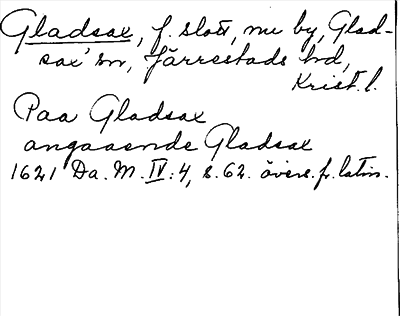 Gladsax, f. slott, nu by, Glad-
sax' sn, Järrestads hd,
Krist. l.
Paa Gladsax
angaaende Gladsax
1621 Da. M. IV: 4, s. 62. övers. fr. latin.